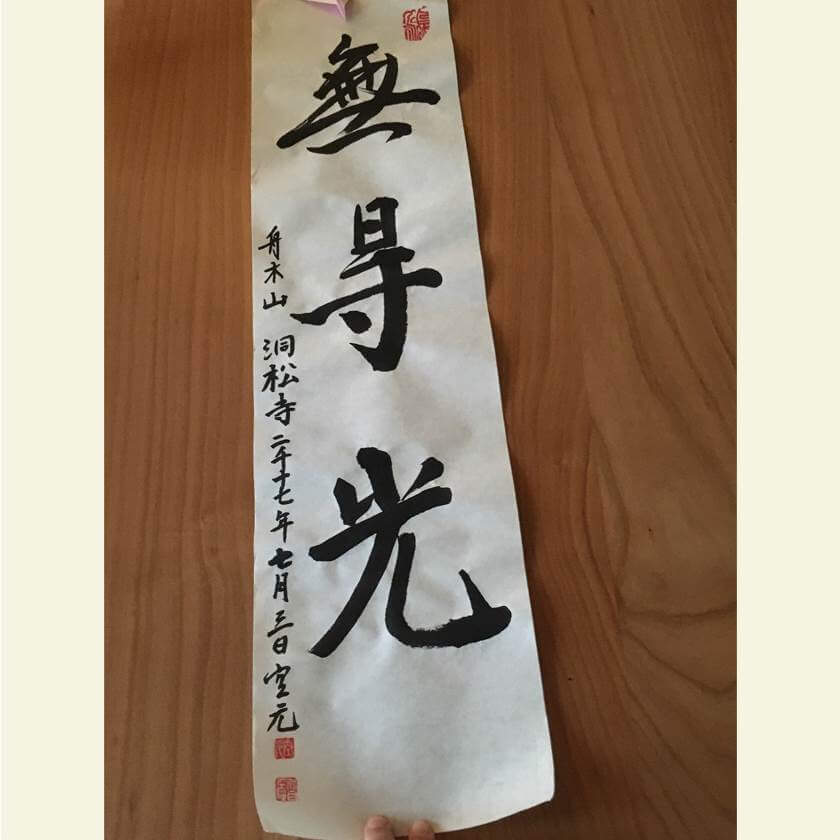 無㝵光
舟木山 洞松寺 二千十七年 七月三日 空元